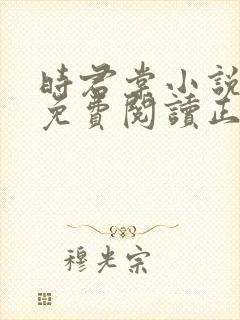 時君棠小説
免費閱讀正
穆光宗